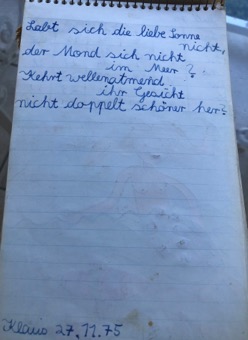 Labt sich die liebe Sonne
nicht,
der Mond sich nicht
im Meer?
Kehrt wellenatmend
ihr Gesicht
nicht doppelt schöner her?
Klaus 27.11.75